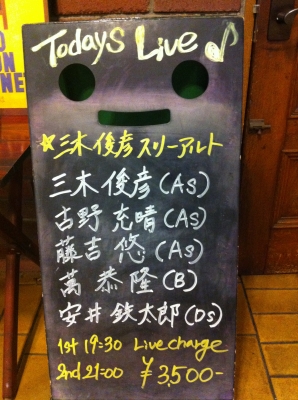 Todays Live♪
☆三木俊彦スリーアルト
三木俊彦(As)
古野充晴(As)
藤吉悠(As)
萬恭隆(B)
安井鉄太郎(Ds)
1st 19:30 Live charge
2nd 21:00 ¥3,500-